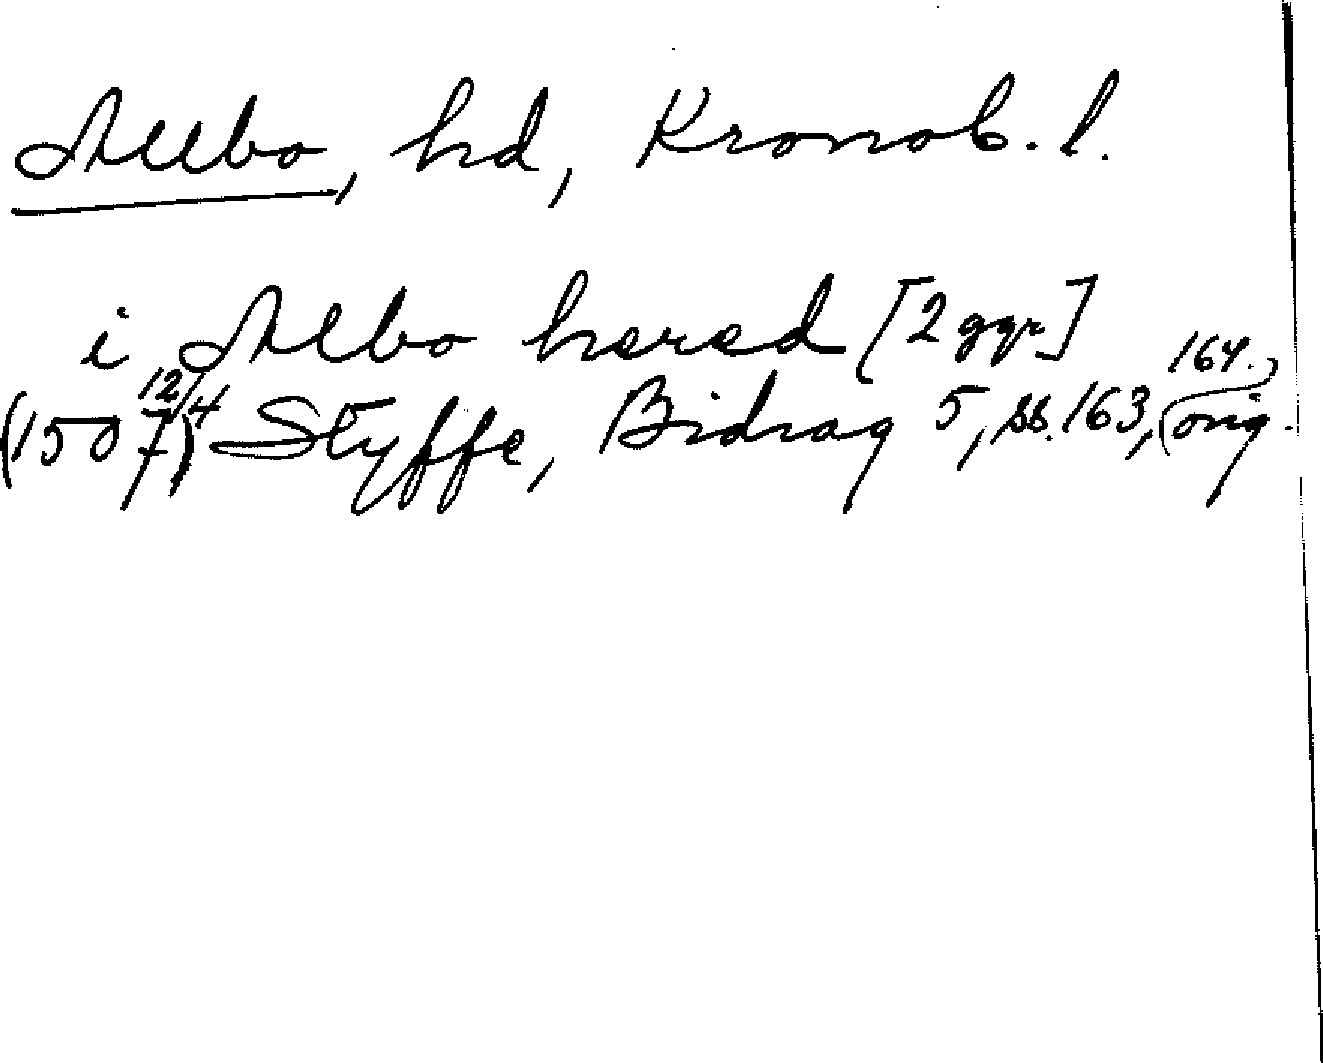 Allbo, hd, Kronob. l.
i Albo herad [2 ggr]
(1507) 12/4 Styffe, Bidrag 5, ss. 163, 164. orig.